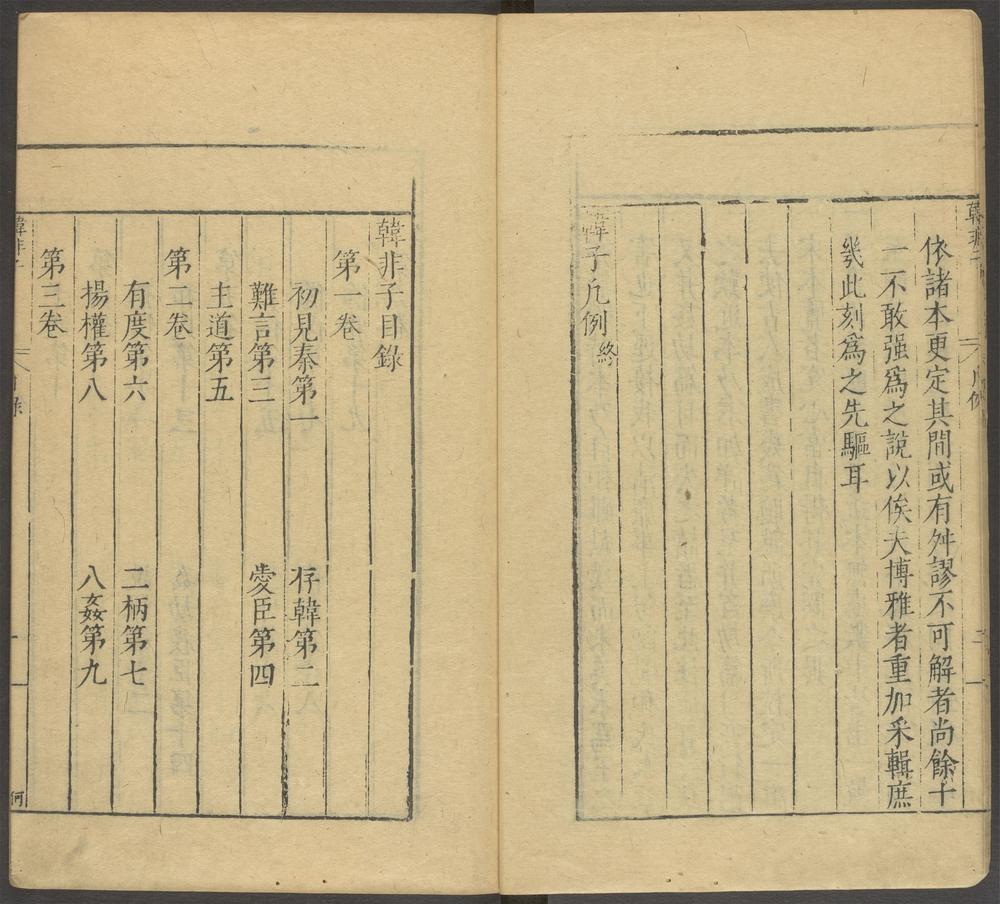 韓非子
凡例
二
依諸本更定其間或有舛謬不可解者尚餘十
一不敢强爲之說以俟夫博雅者重加采輯庶
幾此刻爲之先驅耳
韓子凡例終
韓非子目錄
第一卷
初見秦第一　存韓第二
難言第三　愛臣第四
主道第五
第二卷
有度第六　二柄第七
揚權第八　八姦第九
第三卷
韓非子
目錄
一
何